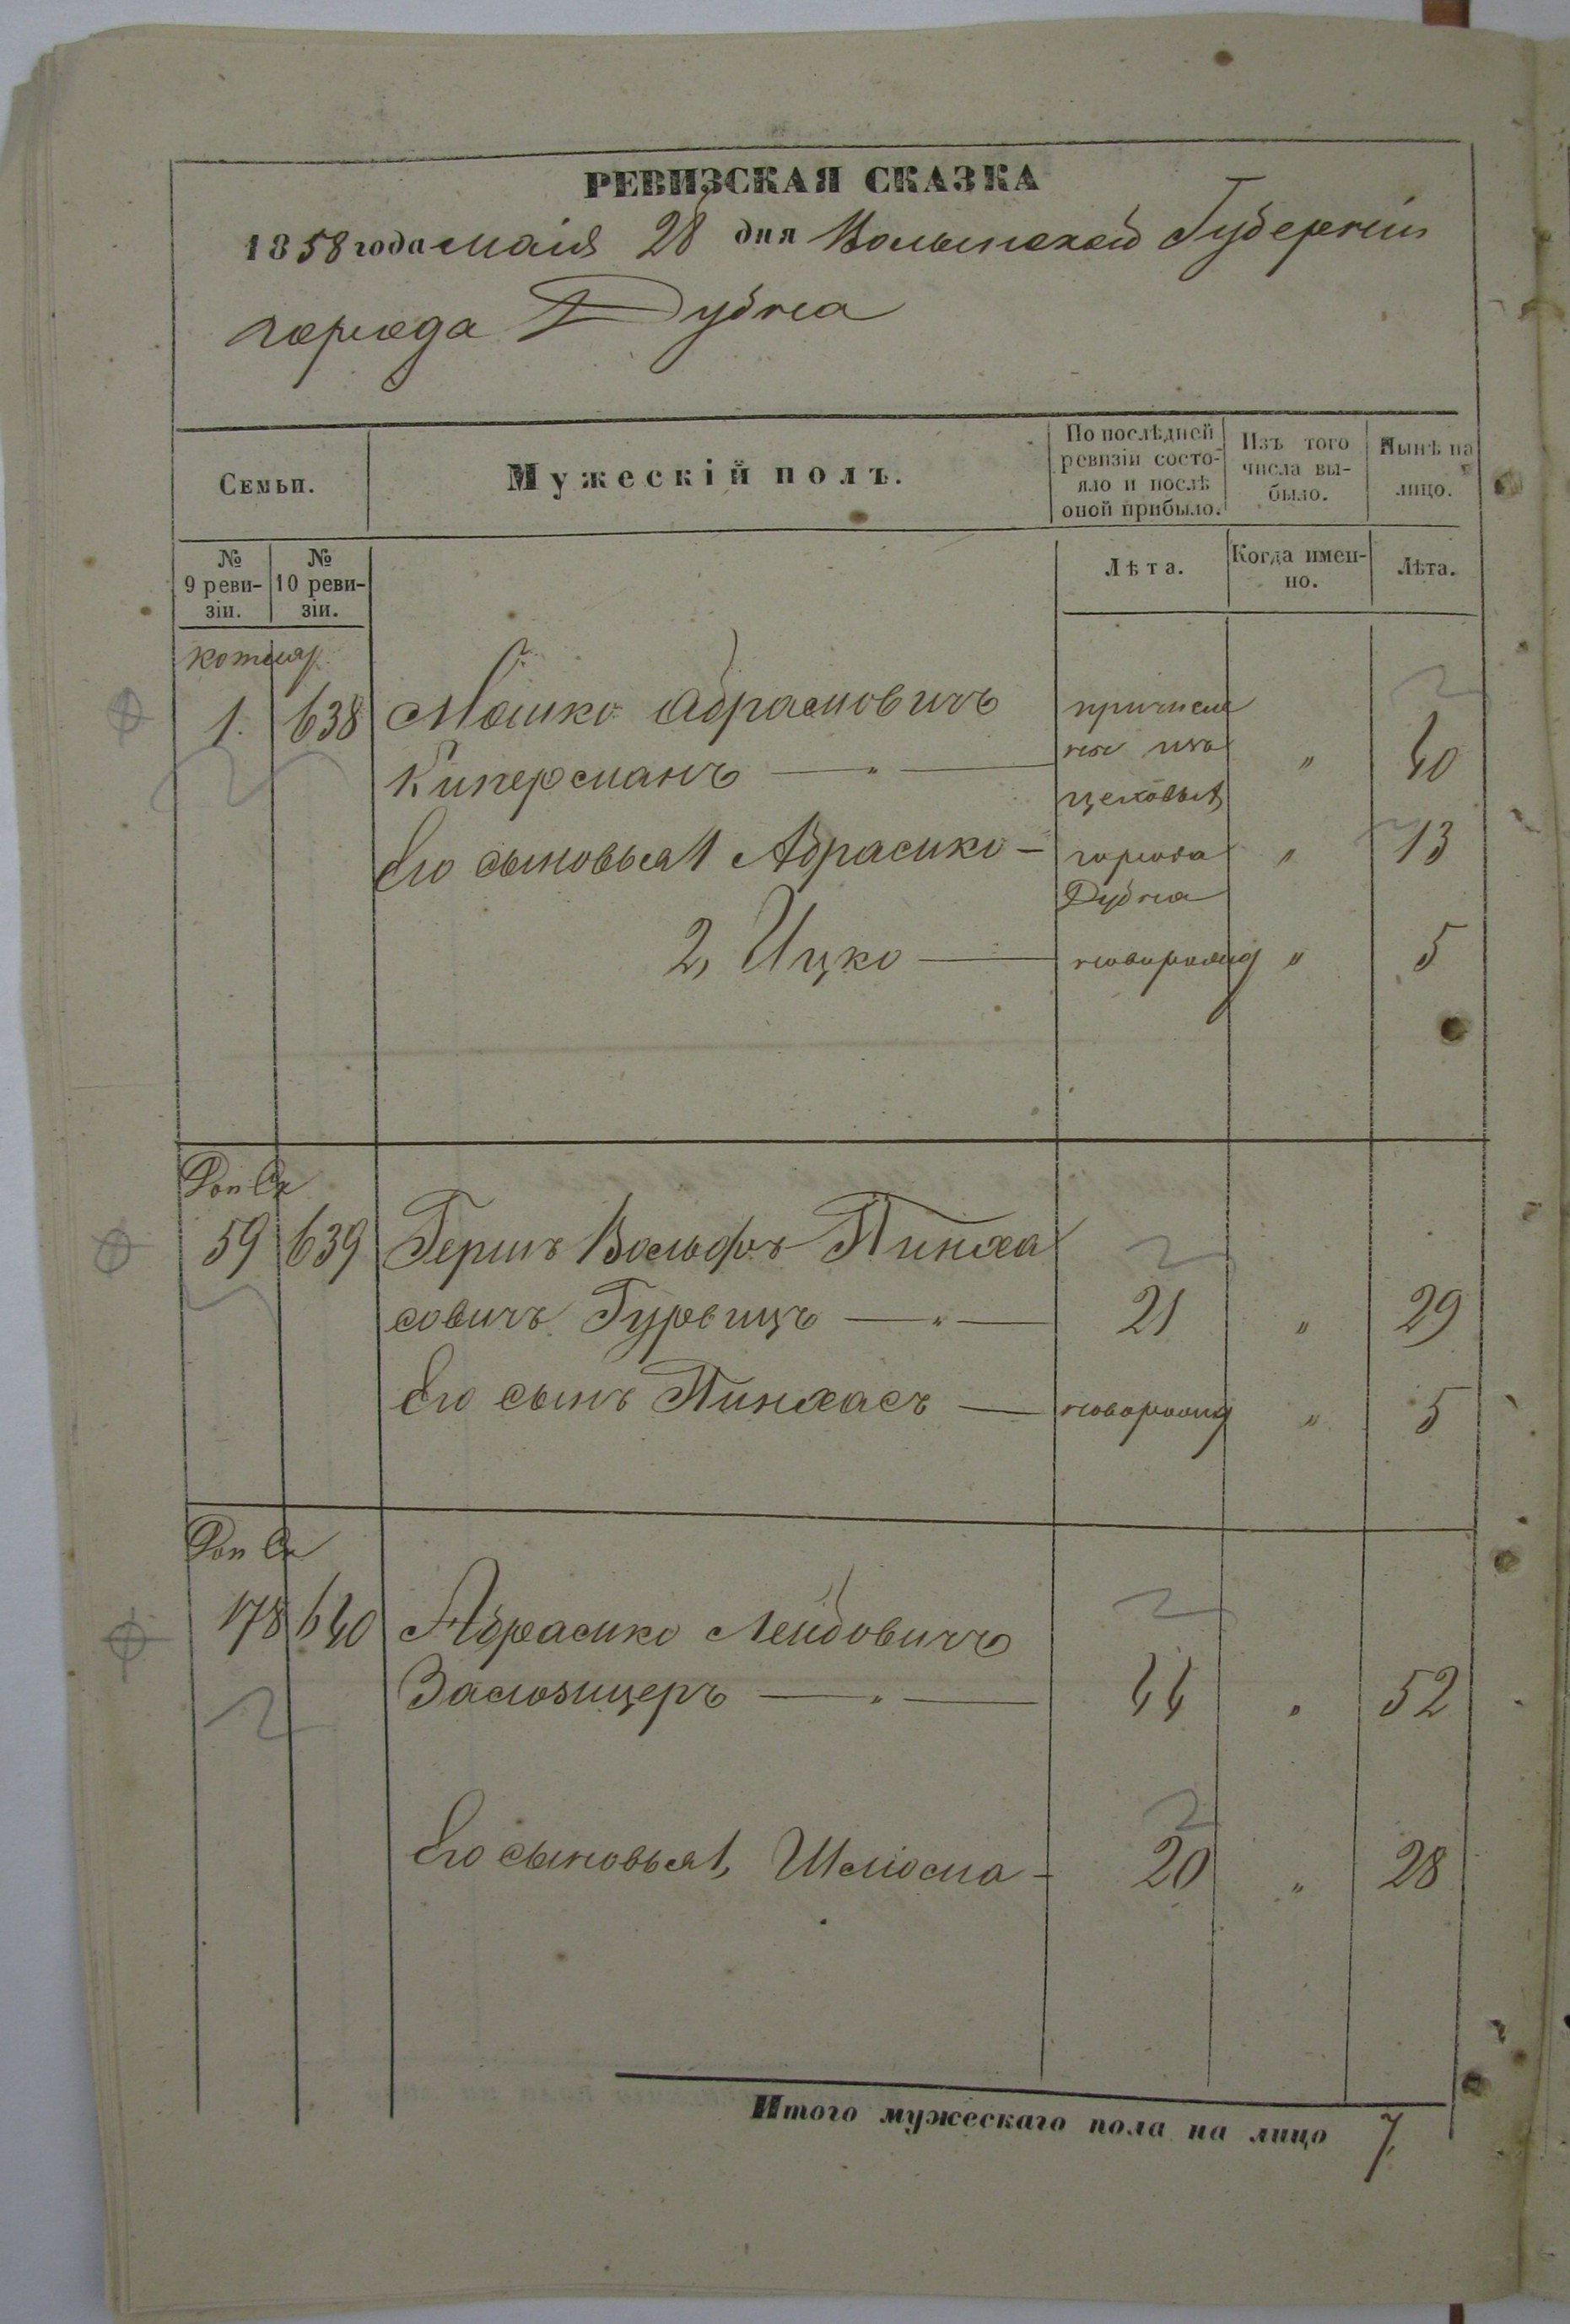 РЕВИЗСКАЯ СКАЗКА
1858 года маія 28 дня Волынской Губерніи
города Дубна
Семьи.
Мужескій полъ.
По послѣдней ревизіи состо-
яло и послѣ
оной прибыло.
Изъ того
числа вы-
было.
Нынѣ на
лицо.
№
9 реви-
зіи.
№
10 реви-
зіи.
Лѣта.
Когда имен-
но.
Лѣта.
котляр
1. 638 Мошко Абрамовичъ
Киперманъ — „ — причисле
ны изъ
цеховыхъ
города
Дубна „ 40
Его сыновья 1 Абрамко — „ 13
2, Ицко — новорожд „ 5
Доп Ск
59 639 Гершъ Вольфъ Пинха
совичъ Гурвицъ — „ — 21 „ 29
Его сынъ Пинхасъ — новорожд „ 5
Доп Ск
178 640 Абрамко Лейбовичъ
Заслозицеръ — „ — 44 „ 52
Его сыновья 1, Шліома - 20 „ 28
Итого мужескаго пола на лицо 7,